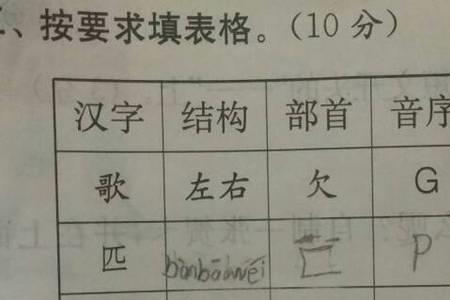 、按要求填表格。(10 分)
汉字 结构 部首 音序
歌 左右 欠 G
匹 bànbāowéi 匚 P